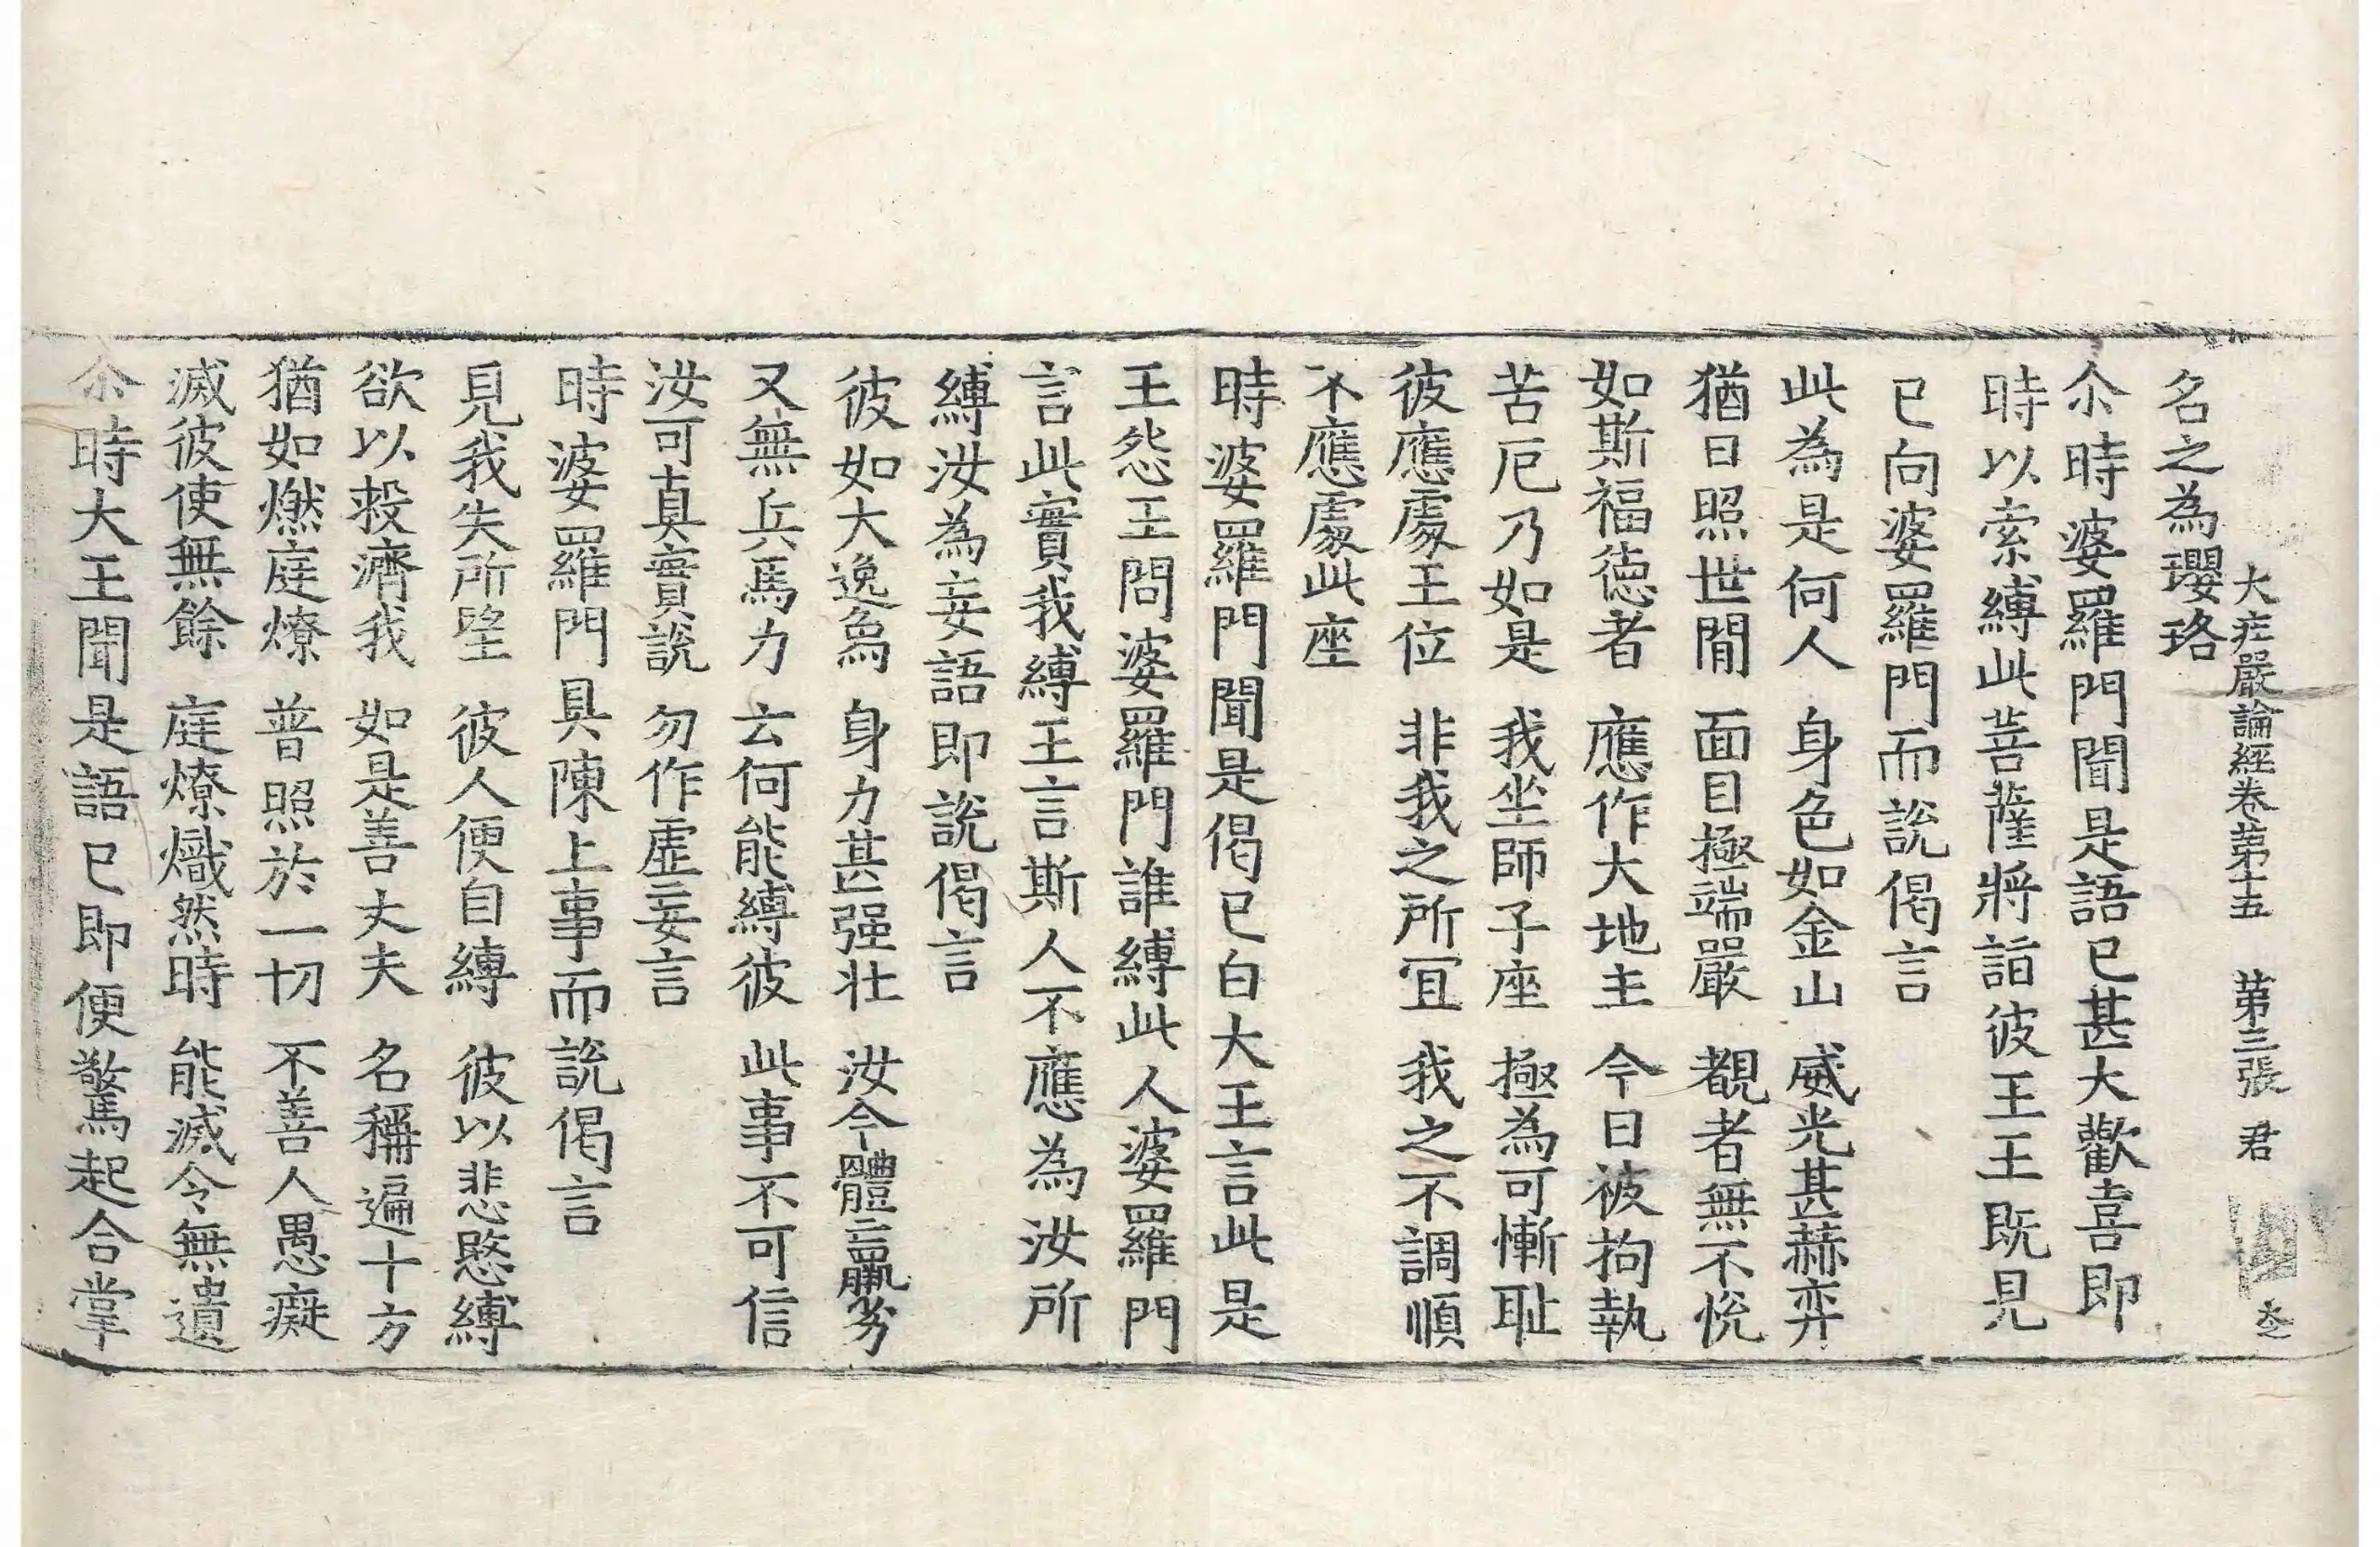 大庄嚴論經卷苐十五　苐三張　君
名之為瓔珞
尒時婆羅門聞是語已甚大歡喜即
時以索縛此菩薩將詣彼王王既見
已向婆羅門而說偈言
此為是何人　身色如金山　威光甚赫弈
猶日照世間　面目極端嚴　覩者無不悅
如斯福德者　應作大地主　今日被拘執
苦厄乃如是　我坐師子座　極為可慚耻
彼應處王位　非我之所冝　我之不調順
不應處此座
時婆羅門聞是偈已白大王言此是
王怨王問婆羅門誰縛此人婆羅門
言此實我縛王言斯人不應為汝所
縛汝為妄語即說偈言
彼如大逸象　身力甚强壯　汝今體羸劣
又無兵馬力　云何能縛彼　此事不可信
汝可真實說　勿作虛妄言
時婆羅門具陳上事而說偈言
見我失所望　彼人便自縛　彼以悲愍縛
欲以救濟我　如是善丈夫　名稱遍十方
猶如燃庭燎　普照於一切　不善人愚癡
滅彼使無餘　庭燎熾然時　能滅令無遺
尒時大王聞是語已即便驚起合掌